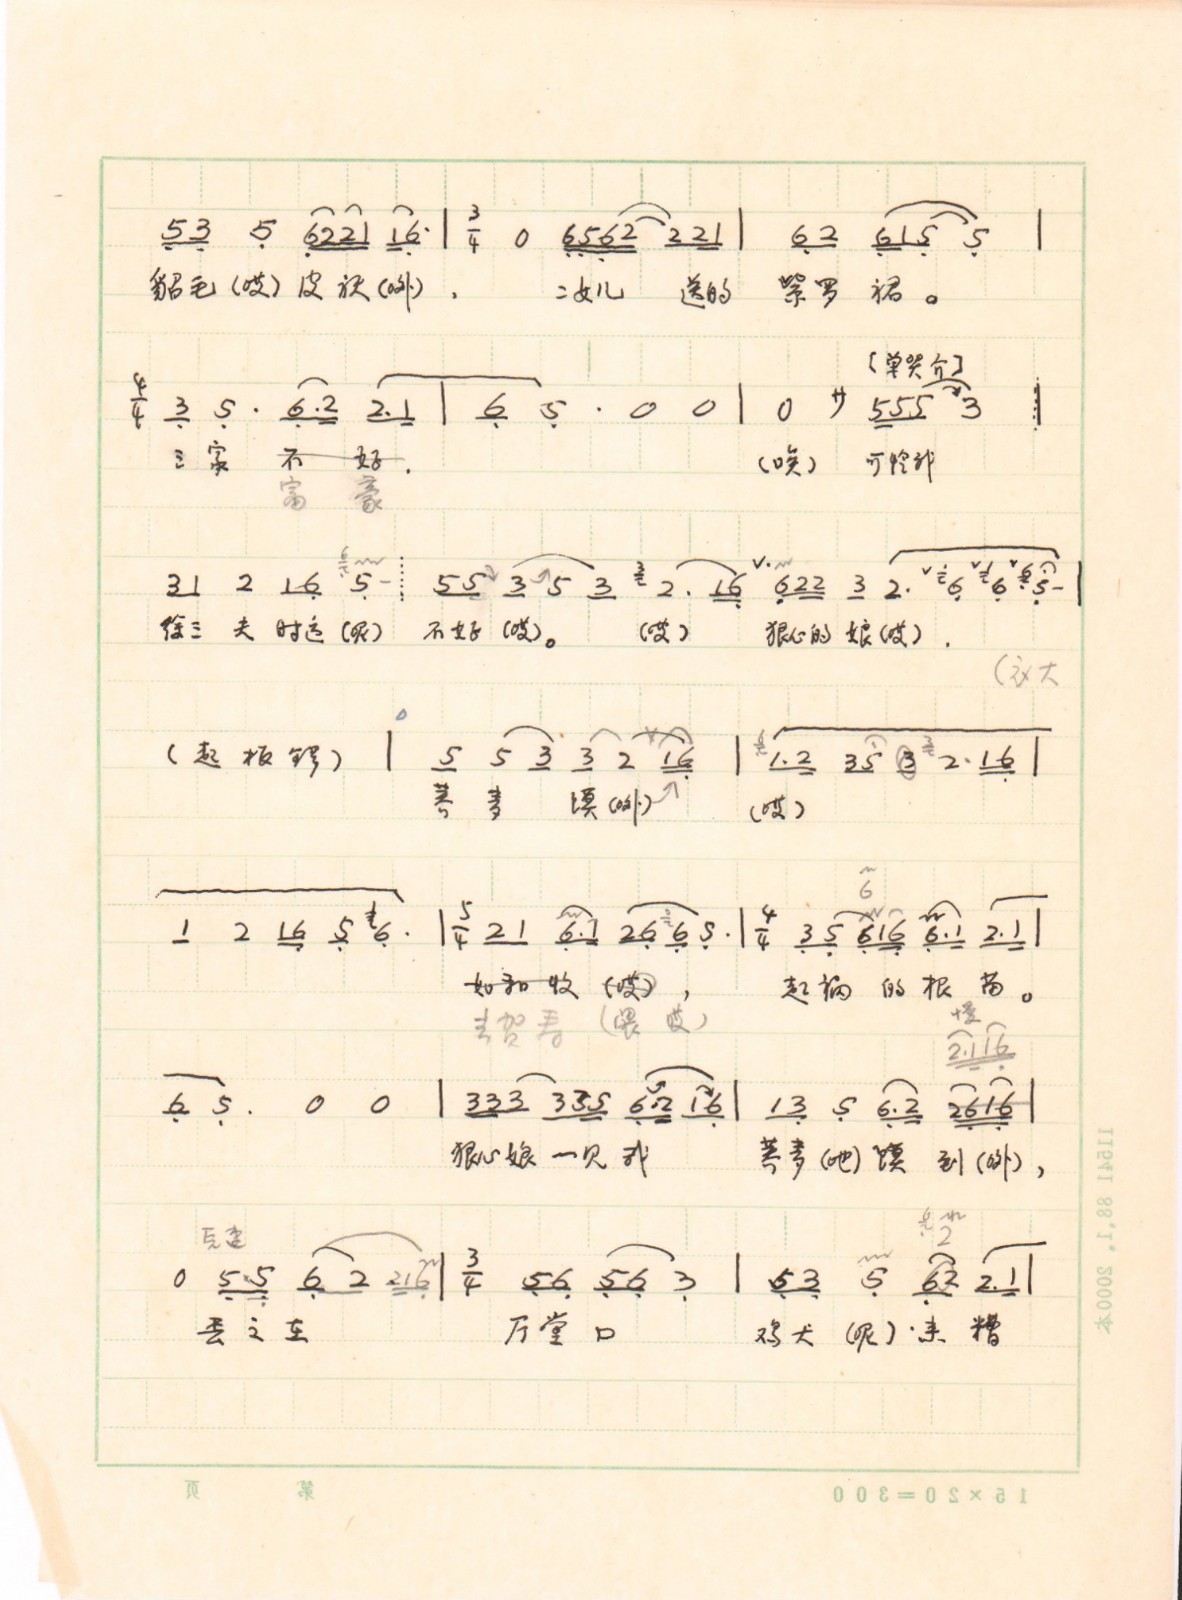 53 5 6221 16· | 3/4 0 6562 221 | 62 615 5 |
貂毛(哎)皮袄(哟), 二女儿 送的 紫罗裙。
[单哭介]
4/4 3 5· 6·2 2·1 | 6 5· 0 0 | 0 サ 555 3
三家 不好. (唉) 可怜我
富 豪
31 2 16 5- 55 3 5 3 2· 16 622 3 2· 6 6 5- |
徐三夫时运(呢) 不好(哎)。 (哎) 狠心的娘(哎).
(起板锣) | 5 5 3 3 2 16 | 1·2 35 3 2·16 |
荞麦馍(哟) (哎)
1 2 16 5 6· | 5/4 21 6·1 26 6 5· | 4/4 35 616 6·1 2·1 |
(哎), 起祸的根苗。
贺寿
慢
2·116
6 5· 0 0 | 333 335 6·2 16 | 13 5 6·2 2616 |
狠心娘一见我 荞麦(吔)馍到(哟),
0 55 6 2 216 | 3/4 56 56 3 | 53 5 62 2·1 |
丢之在 厅堂口 鸡犬(呢)来糟
第 页
15×20=300
11541 88.1. 2000本